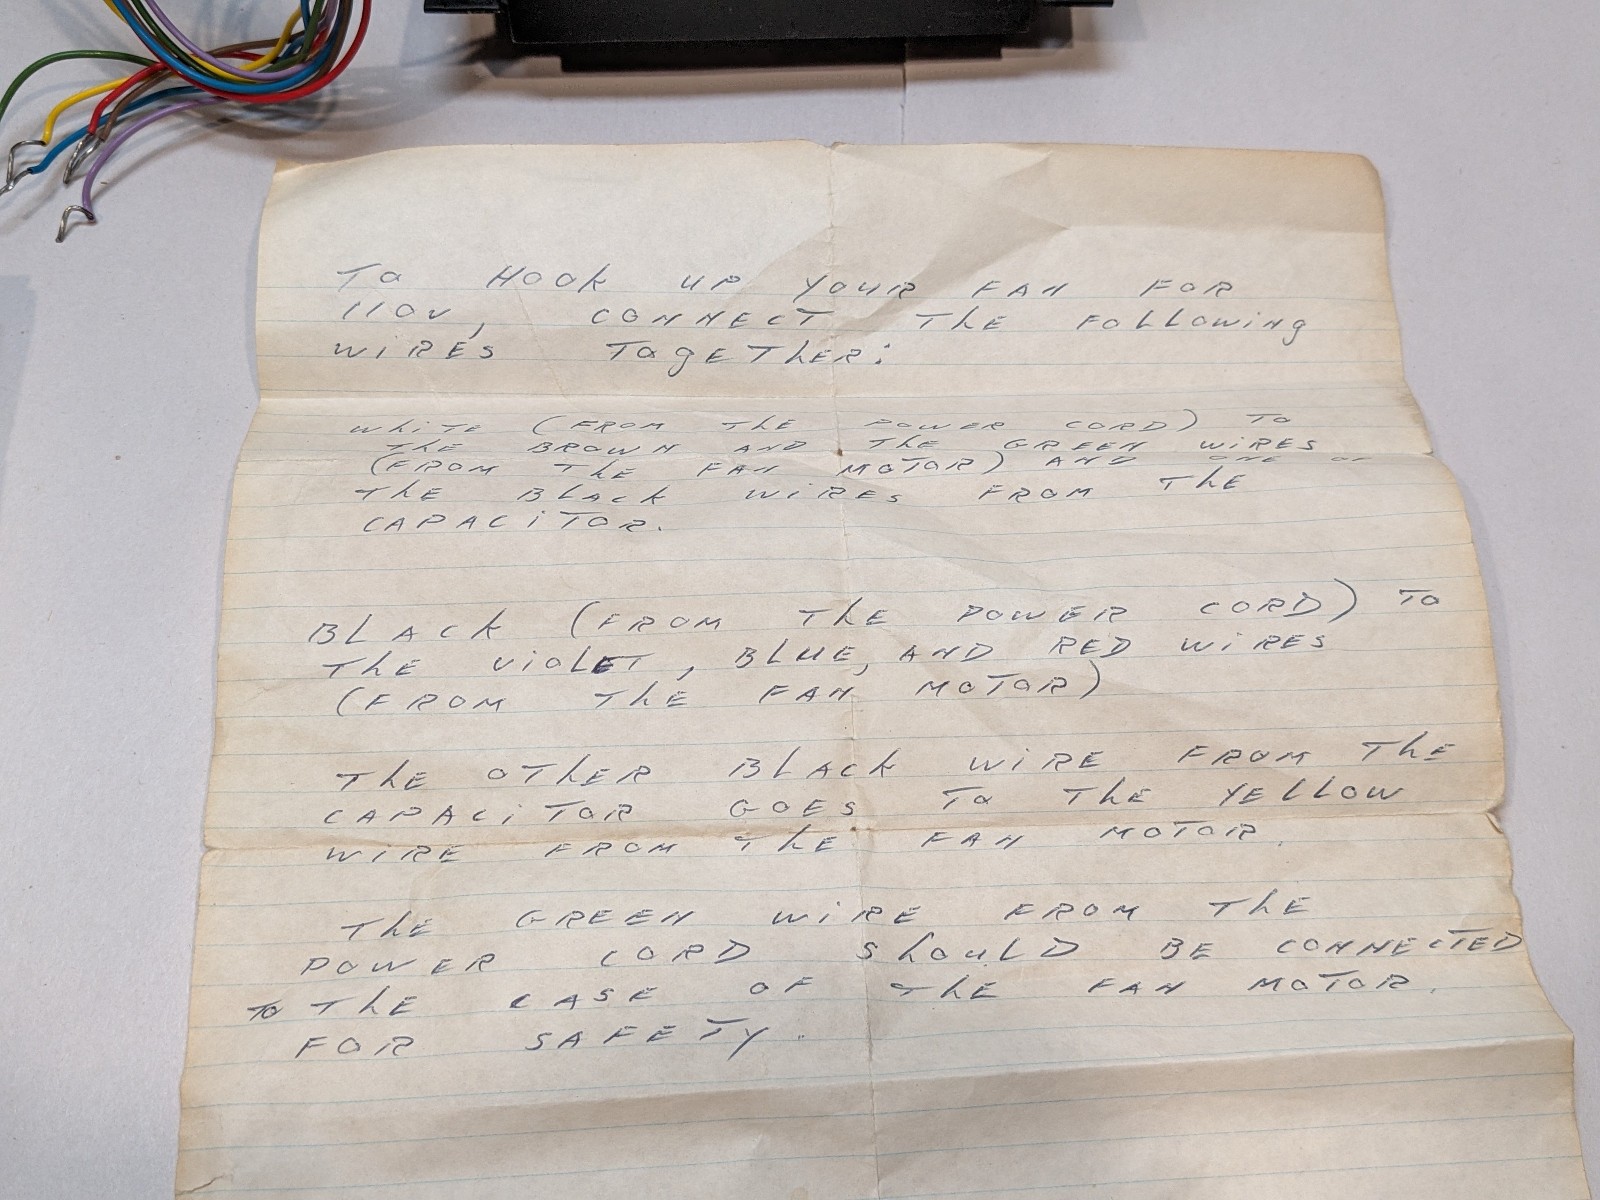 To Hook up your FAN FOR
110v, CONNECT The Following
wiRES TogETher:
White (FROM The POWER CORD) To
The BROWN AND The GREEN wiRES
(FROM The FAN MOTOR) AND ONE OF
The Black wiRES FROM The
CAPACiTOR.
BLACk (FROM The POWER CORD) To
The violET, BLUE, AND RED WiRES
(FROM The FAN MOTOR)
The OTHER BlAck WiRE FROM The
CAPACiTOR GOES To The YELLOW
WiRE FROM The FAN MOTOR.
The GREEN wiRE FROM The
POWER CORD ShouLD BE CONNECTED
To The CASE OF The FAN MOTOR.
FOR SAFETY.